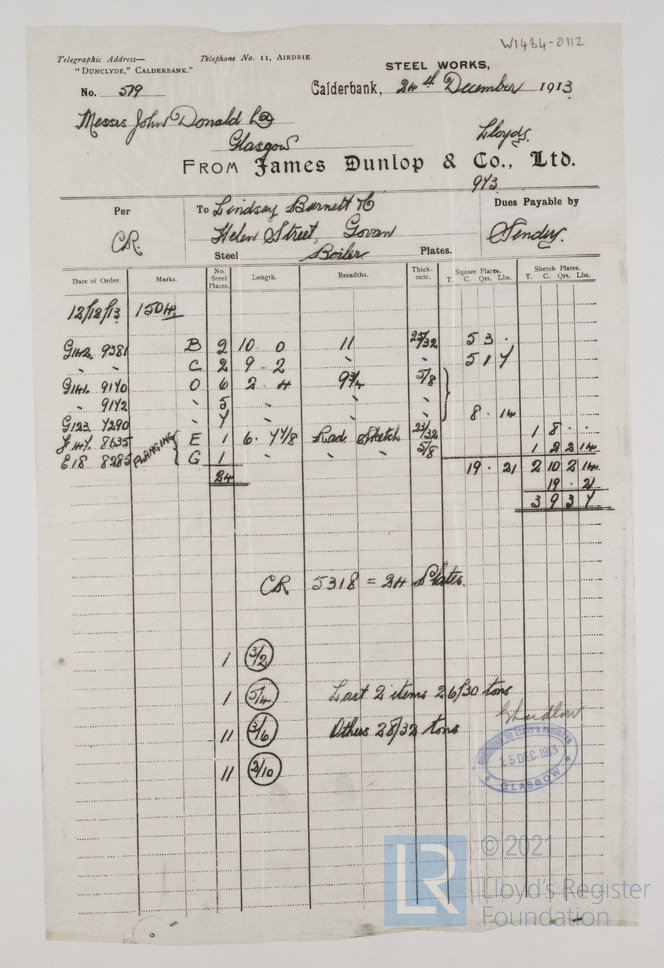 W1484-0112
Telegraphic Address— Telephone No. 11, AIRDRIE.
"DUNCLYDE," CALDERBANK."
STEEL WORKS,
No. 519 Calderbank, 24th December 1913
Messrs John Donald
Glasgow Lloyds.
FROM James Dunlop & Co., Ltd.
973
Per To Lindsay Burnett Dues Payable by
CR. Helen Street, Govan
Steel Boiler Plates.
Date of Order. Marks. No. Steel Plates. Length. Breadths. Thickness. Square Plates. T. C. Qrs. Lbs. Sketch Plates. T. C. Qrs. Lbs.
12/12/13 150H
G142 9381 B 2 10 0 11 25/32 5 3 .
" " C 2 9 . 2 " " 5 1 7
G141. 9140 O 6 2 4 9¾ 5/8
" 9142 " 5 " " "
G123 7290 " 7 " " " 8 . 14
8635 FLANGING E 1 6 . 7 7/8 Made Sketch 23/32 1 8 . .
E18 8285 G 1 " " " 5/8 1 2 2 14
24 19 . 21 2 10 2 14
19 . 21
3 9 3 7
CR 5318 = 24 Plates.
1 3/2
1 5/4 Last 2 items 26/30 tons
11 3/6 Others 28/32 tons
11 2/10
25 DEC 1913
GLASGOW
LR © 2021
Lloyd's Register
Foundation